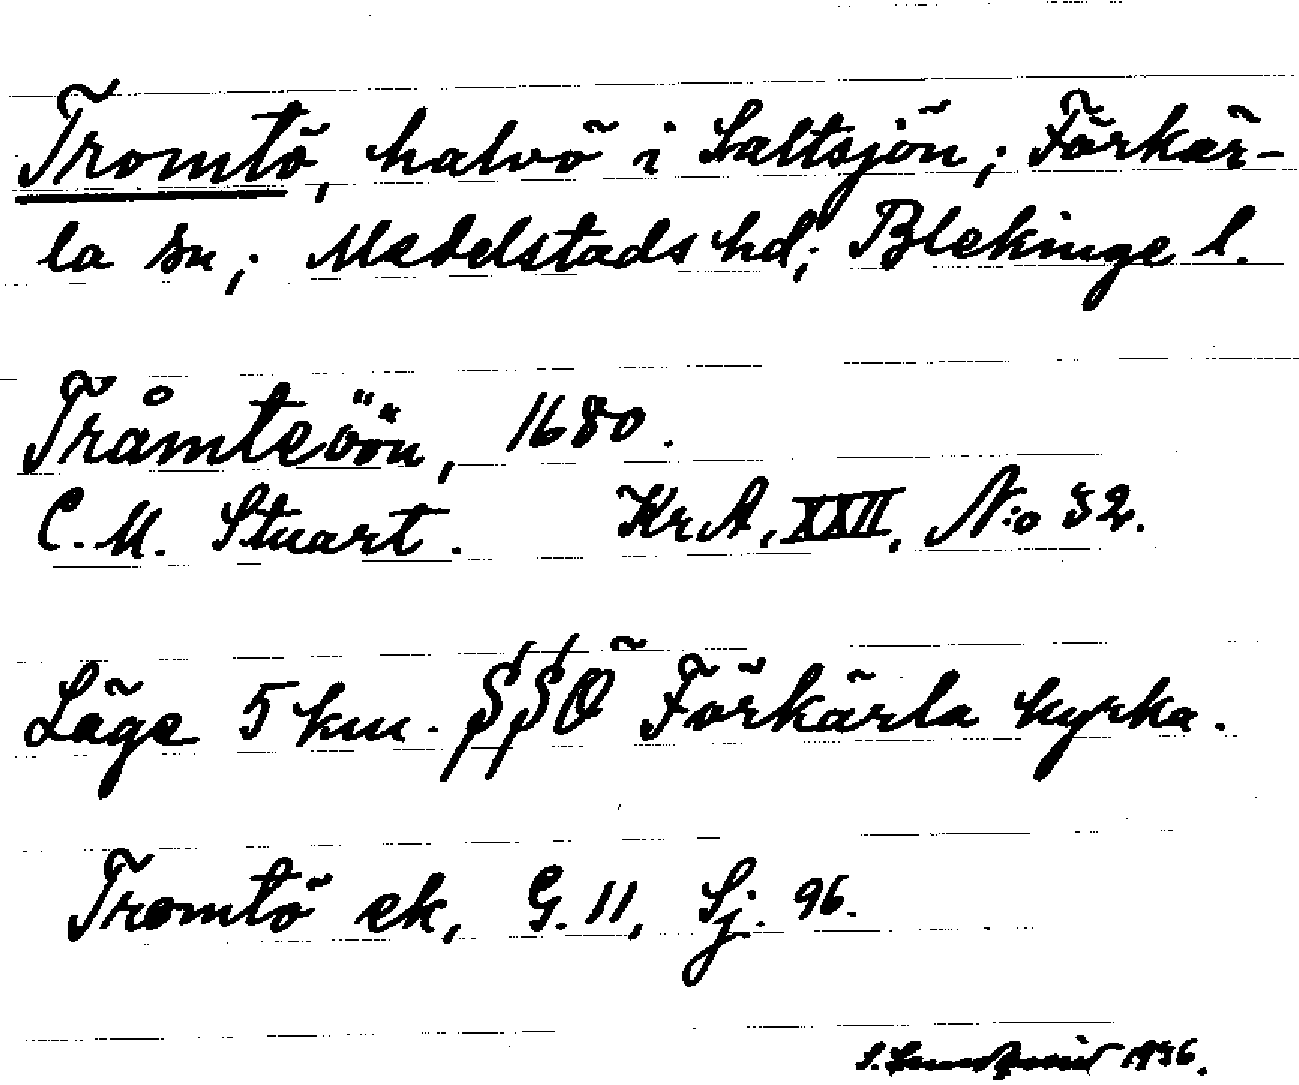 Tromtö, halvö i Saltsjön; Förkär-
la sn; Medelstads hd; Blekinge l.
Tråmteöön, 1680.
C. M. Stuart. KrA, XXII, N:o 32.
Läge 5 km. SSÖ Förkärla kyrka.
Tromtö ek, G. 11, Sj. 96.
1936.